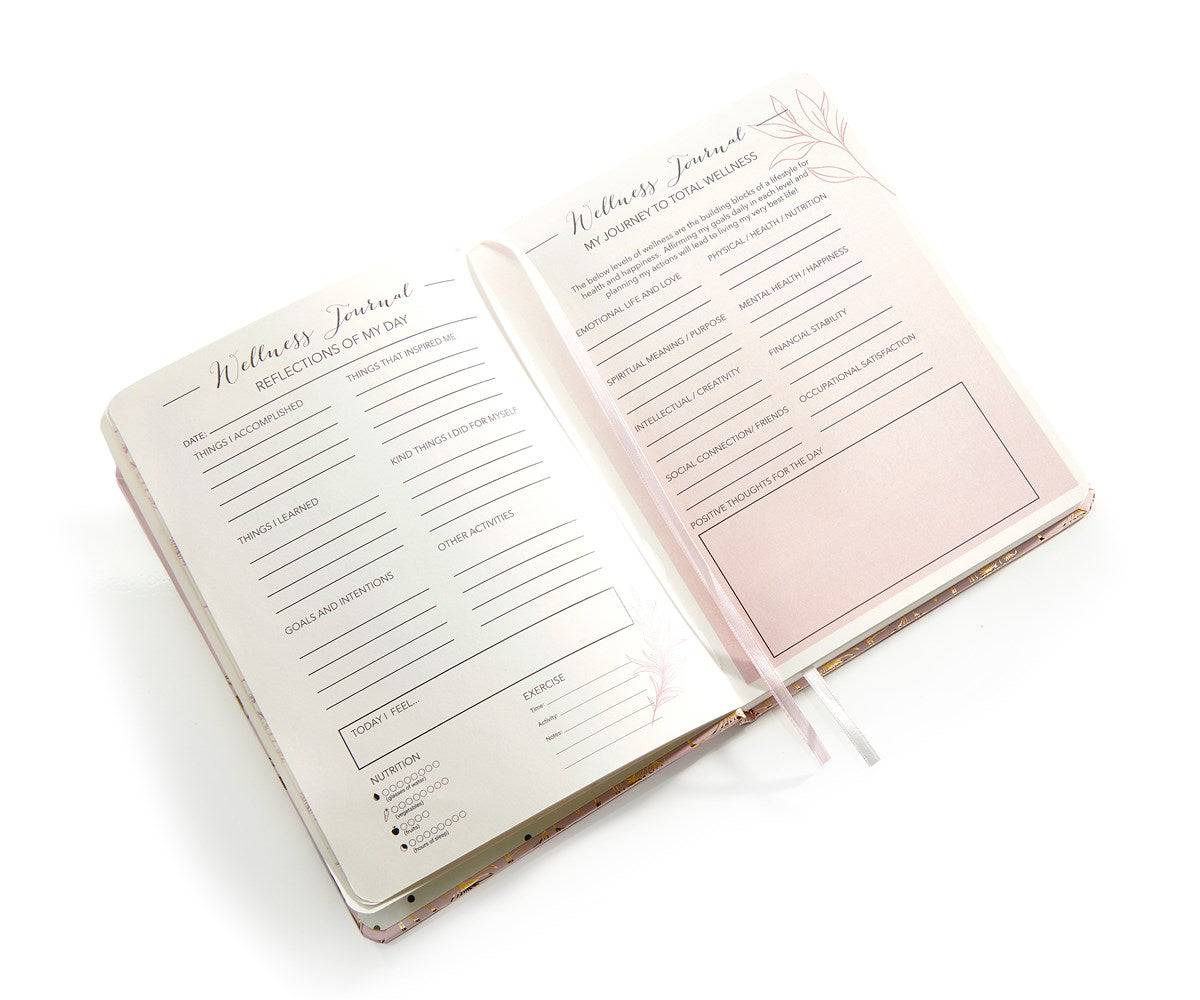 Wellness Journal
REFLECTIONS OF MY DAY
DATE:
THINGS I ACCOMPLISHED
THINGS I LEARNED
GOALS AND INTENTIONS
THINGS THAT INSPIRED ME
KIND THINGS I DID FOR MYSELF
OTHER ACTIVITIES
TODAY I FEEL...
NUTRITION
(glasses of water)
(vegetables)
(fruits)
(hours of sleep)
EXERCISE
Time:
Activity:
Notes:
Wellness Journal
MY JOURNEY TO TOTAL WELLNESS
The below levels of wellness are the building blocks of a lifestyle for
health and happiness. Affirming my goals daily in each level and
planning my actions will lead to living my very best life!
EMOTIONAL LIFE AND LOVE
SPIRITUAL MEANING / PURPOSE
INTELLECTUAL / CREATIVITY
SOCIAL CONNECTION/ FRIENDS
PHYSICAL / HEALTH / NUTRITION
MENTAL HEALTH / HAPPINESS
FINANCIAL STABILITY
OCCUPATIONAL SATISFACTION
POSITIVE THOUGHTS FOR THE DAY